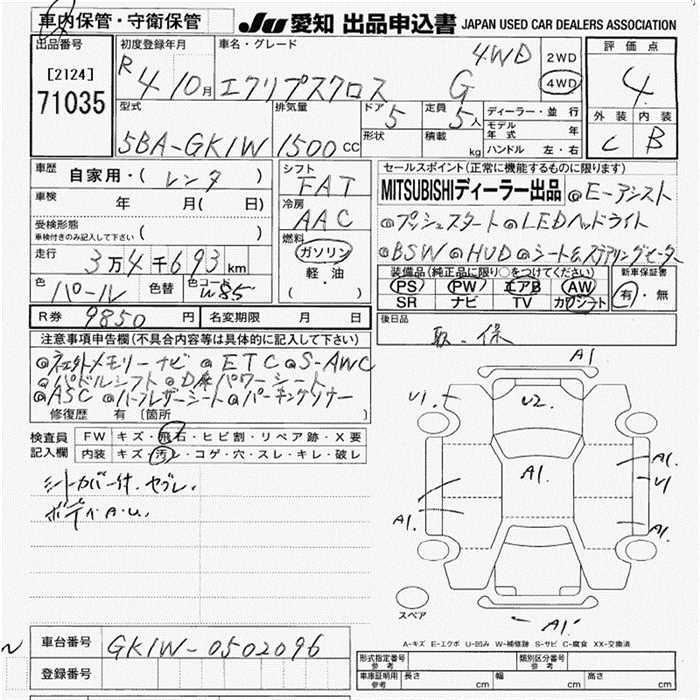 車内保管・守衛保管
JU 愛知 出品申込書 JAPAN USED CAR DEALERS ASSOCIATION
出品番号 初度登録年月 車名・グレード 評価点
[2124] R 4 10月 エクリプスクロス G 4WD 2WD 4WD 4
71035
型式 排気量 ドア 5 定員 5人 ディーラー・並行 外装 内装
5BA-GK1W 1500cc 形状 積載 kg モデル年式 年 C B
ハンドル 左・右
車歴 自家用・(レンタ) シフト FAT セールスポイント(正常に機能するものに限ります)
車検 年 月( 日) 冷房 AAC MITSUBISHIディーラー出品 ◎E-アシスト
受検形態 ◎プッシュスタート ◎LEDヘッドライト
車検付きのみ記入して下さい ( ) 燃料 ガソリン ◎BSW ◎HUD ◎シート&ステアリングヒーター
走行 3万4千693km 軽・油 装備品(純正品に限り○をつけてください) 新車保証書
色 パール 色替 色コード W85 ( ) PS PW エアB AW 有・無
SR ナビ TV カワシート
R券 9850円 名変期限 月 日 後日品
注意事項申告欄(不具合内容等は具体的に記入して下さい) 取・保
◎社外メモリーナビ ◎ETC ◎S-AWC
◎パドルシフト ◎D席パワーシート
◎ASC ◎ハーフレザーシート ◎パーキングソナー
修復歴 有 [箇所 ]
検査員 FW キズ・飛石・ヒビ割・リペア跡・X要
記入欄 内装 キズ・汚レ・コゲ・穴・スレ・キレ・破レ
シートカバー付.
ボディ A.U.
A1
U1. U2
A1.
A1
U1
A1.
A1.
スペア A1.
A-キズ E-エクボ U-凹み W-補修跡 S-サビ C-腐食 XX-交換済
車台番号 GK1W-0502096
登録番号
形式指定番号 参考 類別区分番号 参考
車庫証明用 参考 長さ cm 幅 cm 高さ cm